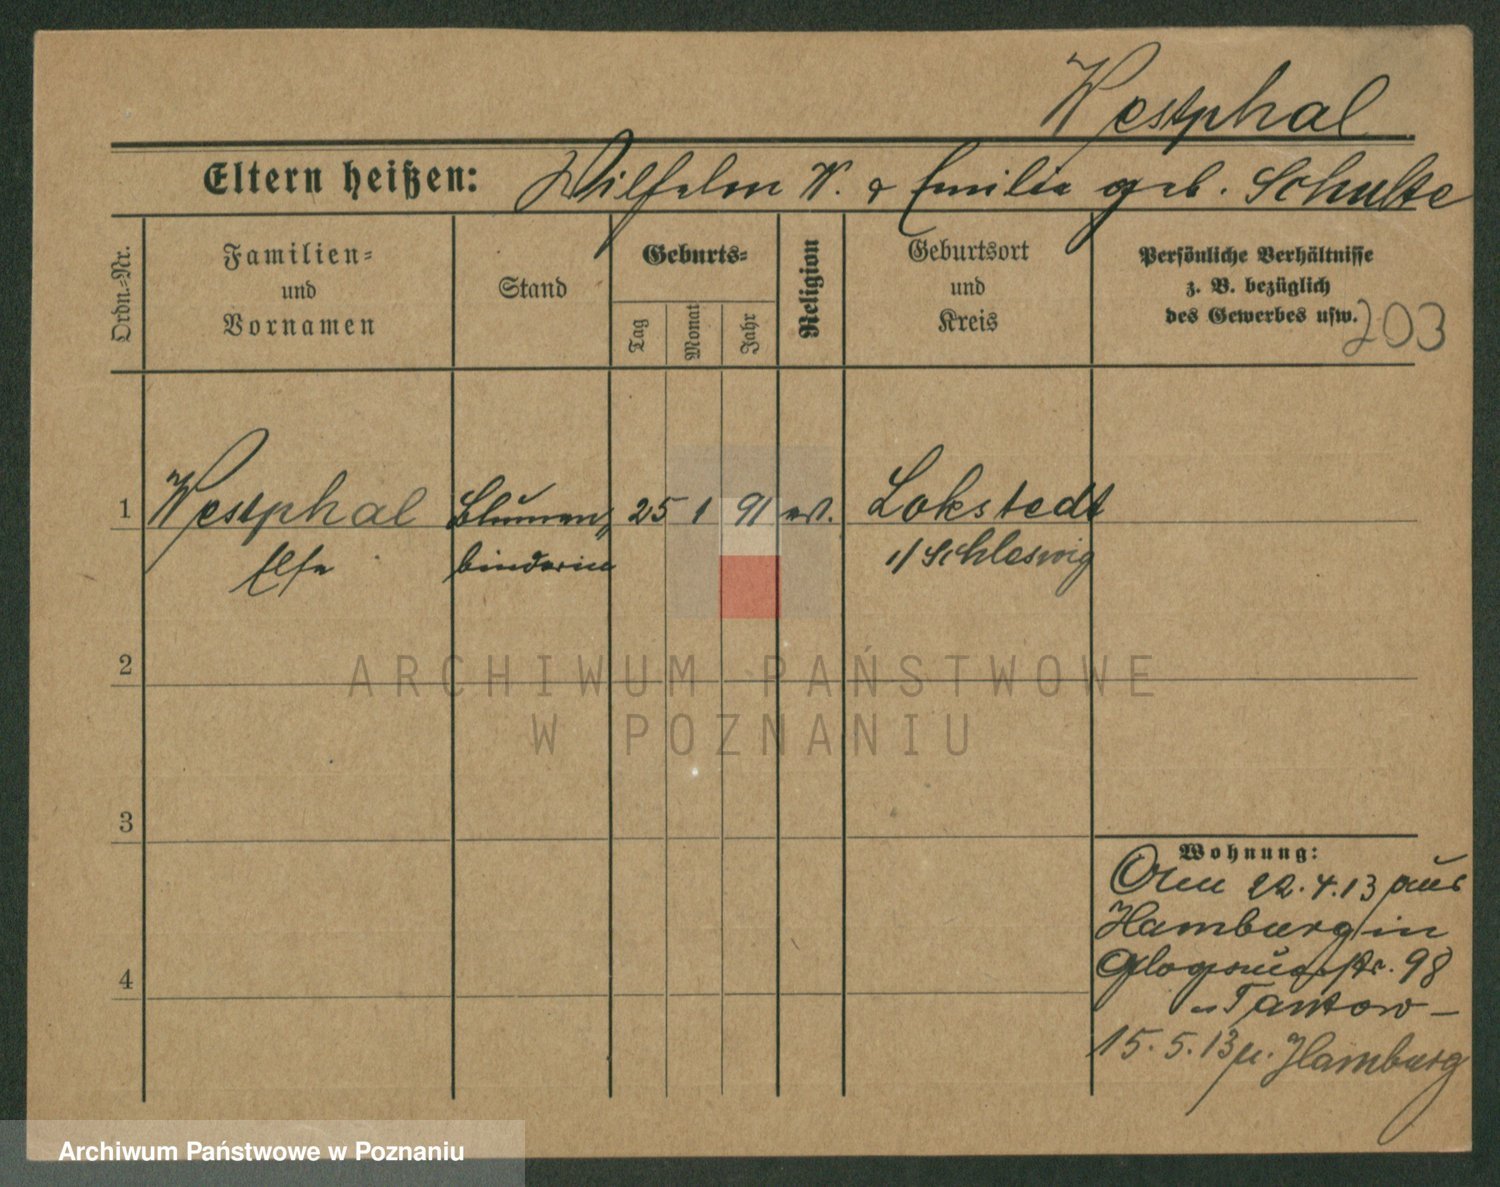 Westphal
Eltern heißen: Wilhelm W. & Emilie geb. Schulte
Ordn.-Nr.
Familien-
und
Vornamen
Stand
Geburts-
Tag
Monat
Jahr
Religion
Geburtsort
und
Kreis
Persönliche Verhältnisse
z. B. bezüglich
des Gewerbes usw.
203
1 Westphal Blumen= 25 1 91 ev. Lokstedt
Else binderin i/ Schleswig
2
ARCHIWUM PAŃSTWOWE
W POZNANIU
3
Wohnung:
22.4.13 aus
Hamburg in
Glogauerstr. 98
Tankow –
4
15.5.13 n. Hamburg
Archiwum Państwowe w Poznaniu